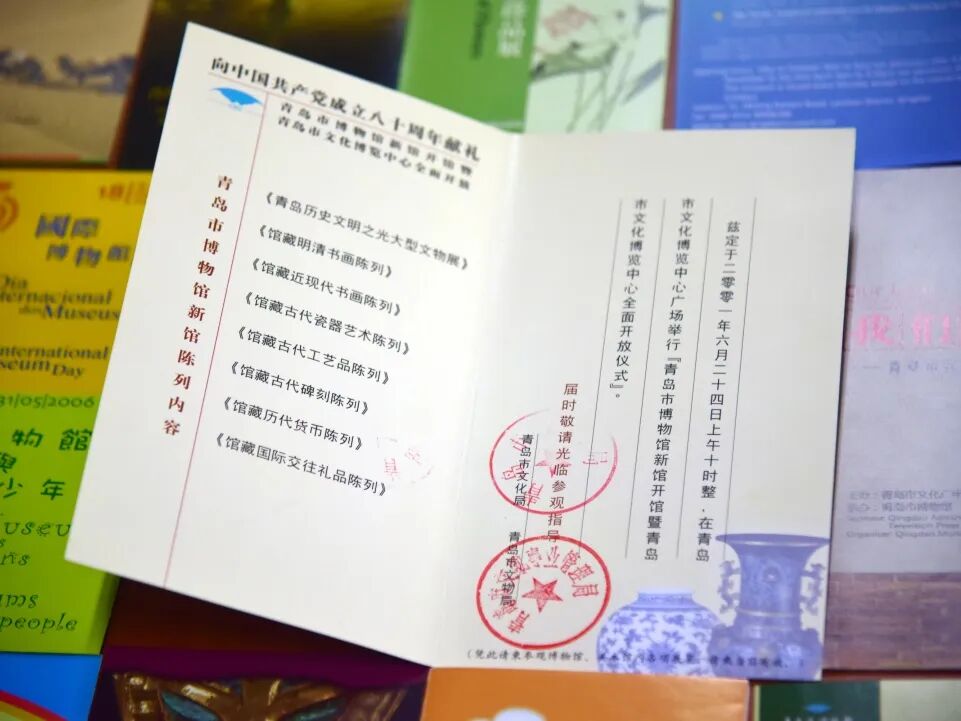 向中国共产党成立八十周年献礼
青岛市博物馆新馆开馆暨
青岛市文化博览中心全面开放
青岛市博物馆新馆陈列内容
《青岛历史文明之光大型文物展》
《馆藏明清书画陈列》
《馆藏近现代书画陈列》
《馆藏古代瓷器艺术陈列》
《馆藏古代工艺品陈列》
《馆藏古代碑刻陈列》
《馆藏历代货币陈列》
《馆藏国际交往礼品陈列》
兹定于二零零一年六月二十四日上午十时整,在青岛
市文化博览中心广场举行『青岛市博物馆新馆开馆暨青岛
市文化博览中心全面开放仪式』。
届时敬请光临参观指导
青岛市文化局
青岛市文物局
國際
博物館
Dia
Internacional
dos Museus
International
Museum Day
31/05/2006
物館
少年
people